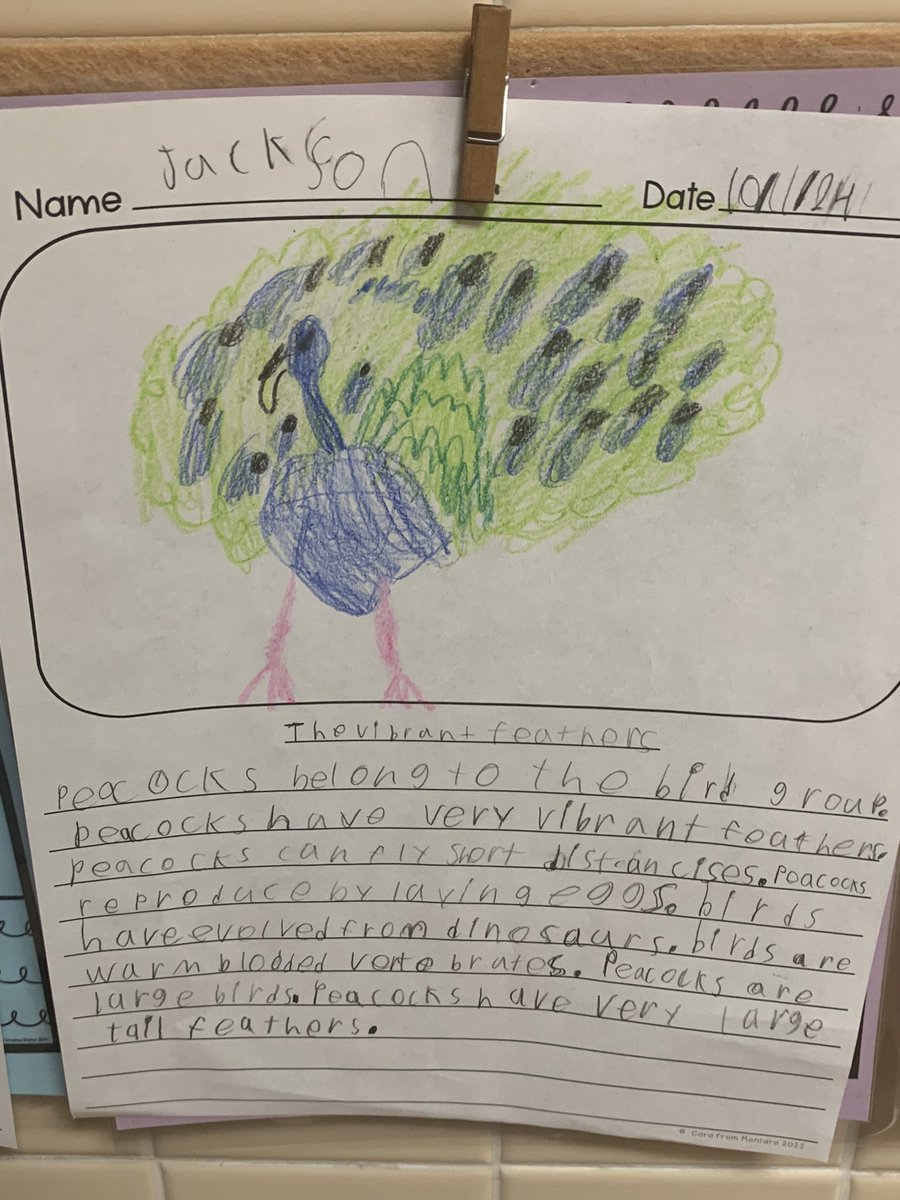 Name Jackson Date
The vibrant feathers
Peacocks belong to the bird group.
peacocks have very vibrant feathers.
peacocks can fly short distancises. Peacocks
reproduce by laying eggs. birds
have evolved from dinosaurs. birds are
warm blooded vertebrates. Peacocks are
large birds. Peacocks have very large
tail feathers.
© Cara from Montara 2022